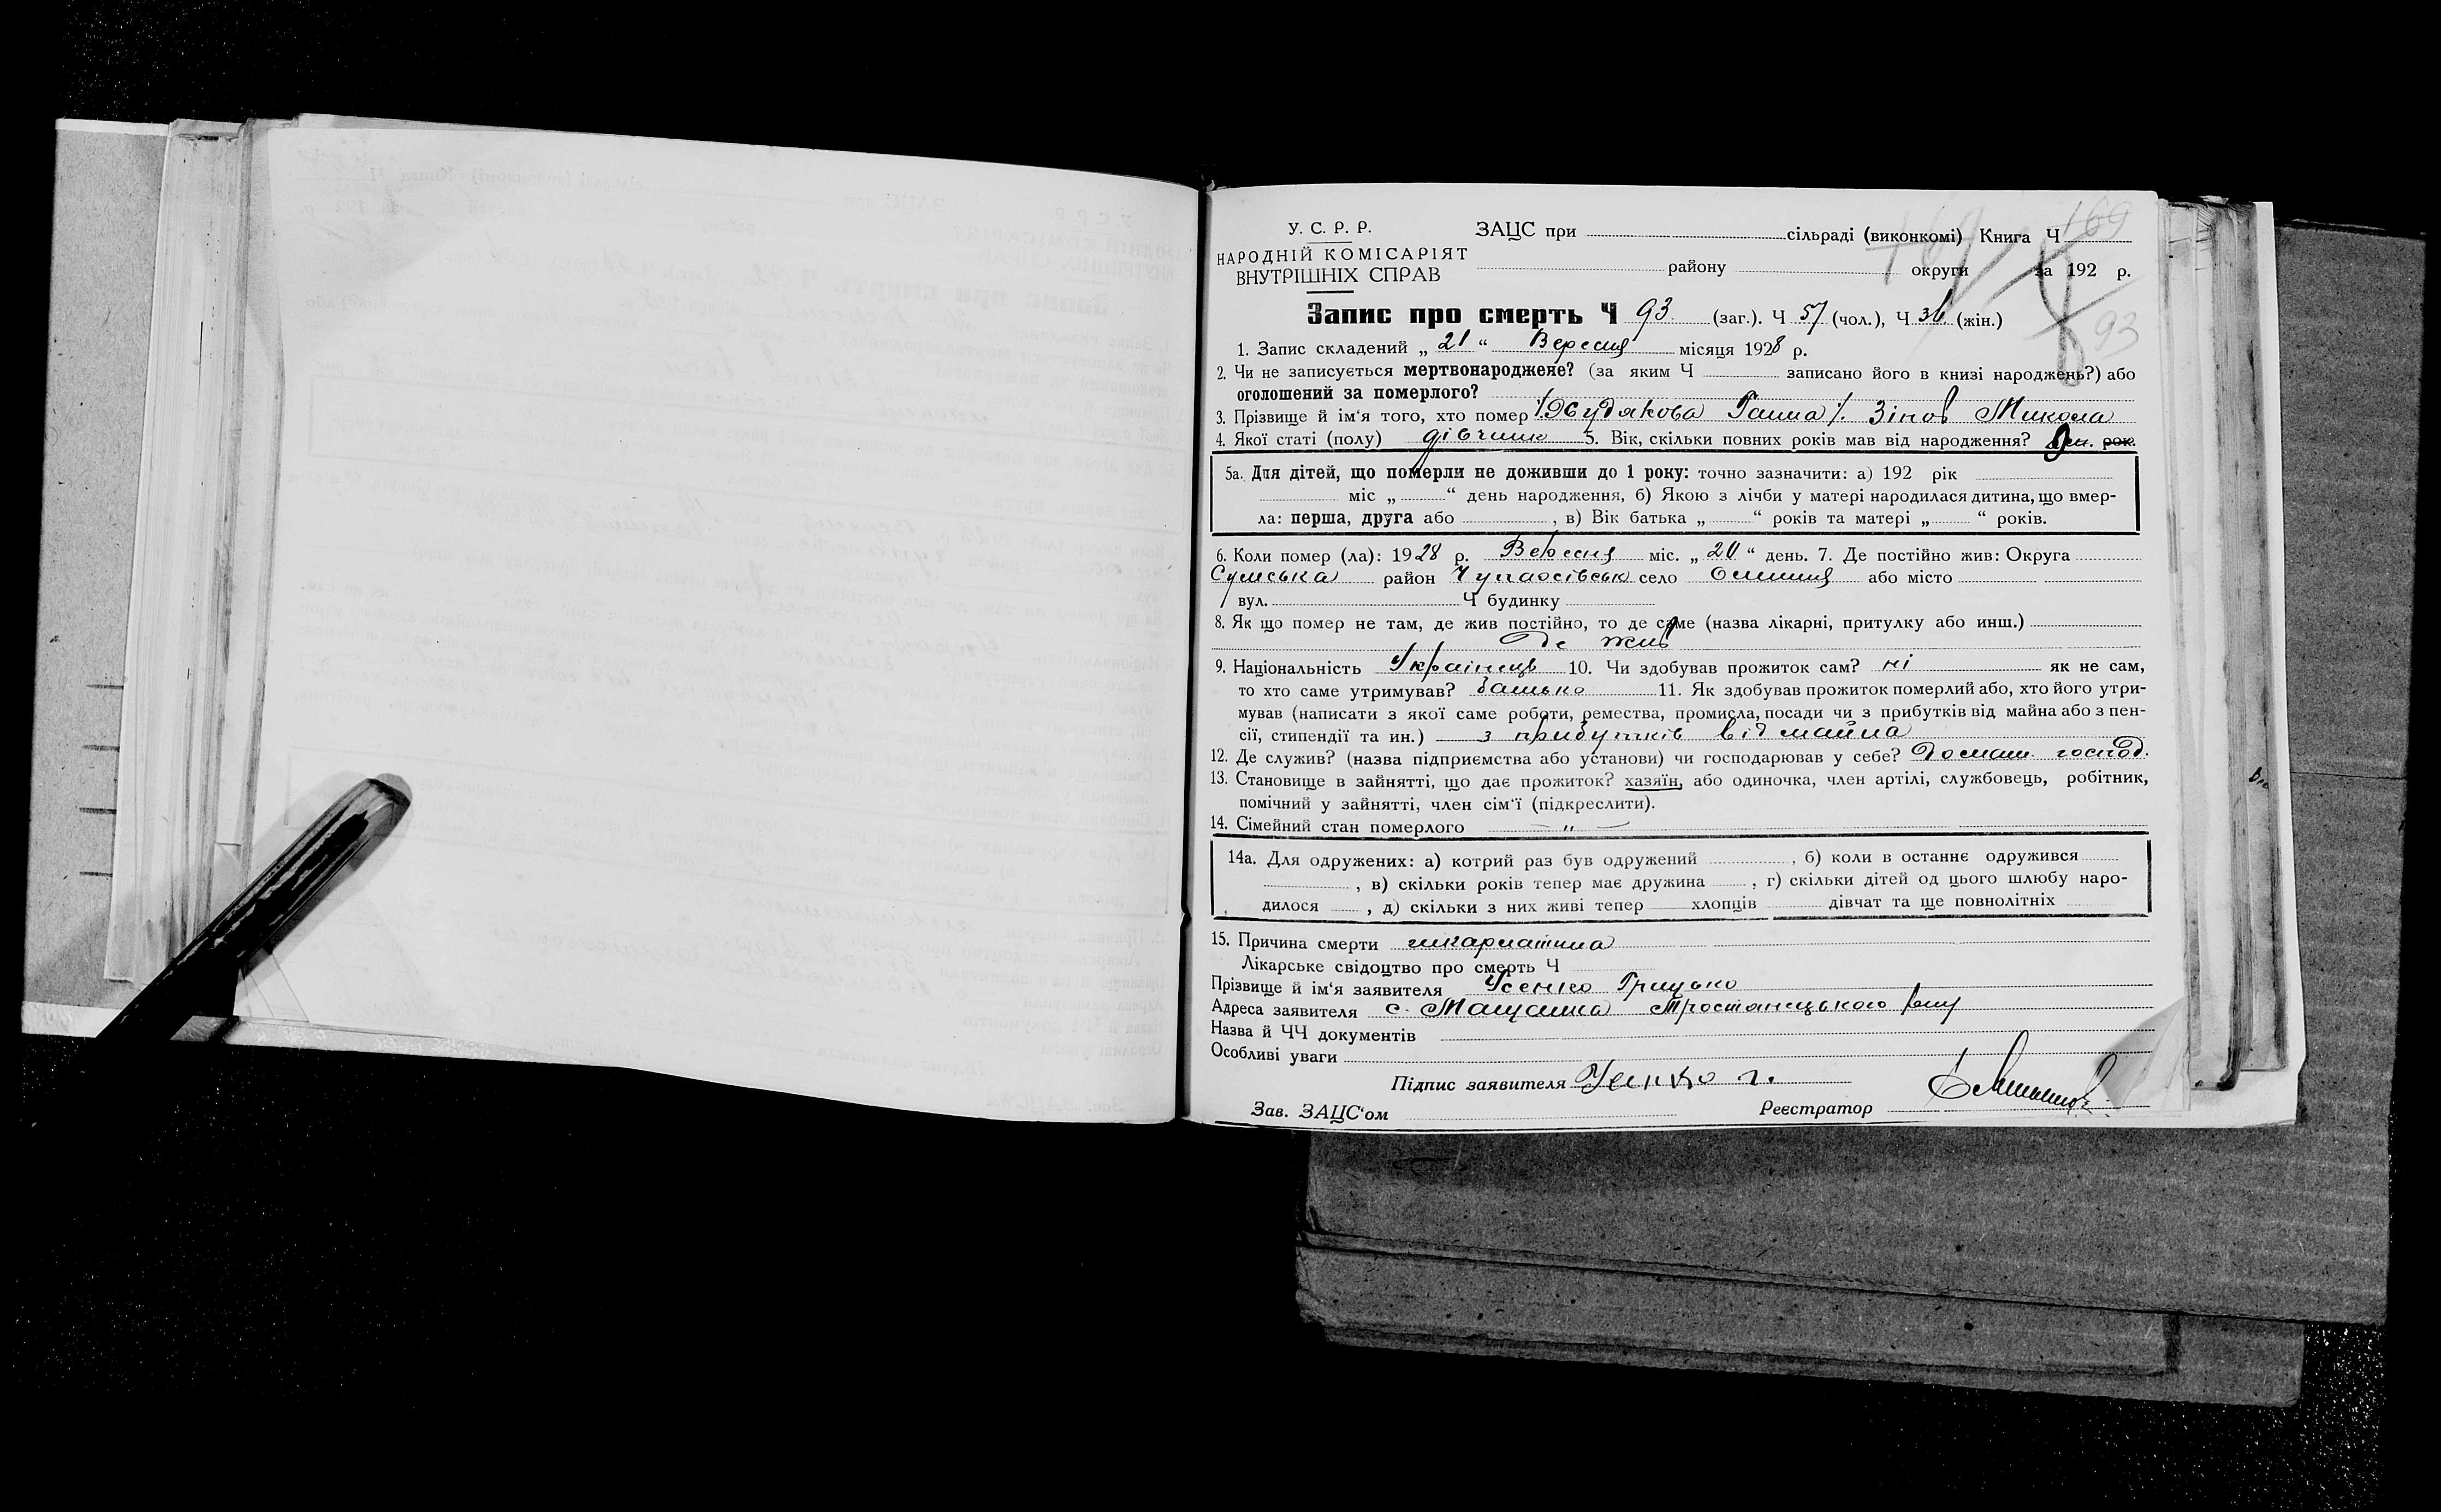 169
У. С. Р. Р. ЗАЦС при сільраді (виконкомі) Книга Ч
НАРОДНІЙ КОМІСАРІЯТ району округи за 192 р.
ВНУТРІШНІХ СПРАВ
Запис про смерть Ч 93 (заг.). Ч 57 (чол.), Ч 36 (жін.)
93
1. Запис складений „ 21 “ Вересня місяця 1928 р.
2. Чи не записується мертвонароджене? (за яким Ч записано його в книзі народжень?) або
оголошений за померлого?
3. Прізвище й ім'я того, хто помер Ганна Зінов Микола
4. Якої статі (полу) дівчина 5. Вік, скільки повних років мав від народження? рок.
5а. Для дітей, що померли не доживши до 1 року: точно зазначити: а) 192 рік
міс „ “ день народження, б) Якою з лічби у матері народилася дитина, що вмер-
ла: перша, друга або , в) Вік батька „ “ років та матері „ “ років.
6. Коли помер (ла): 1928 р. Вересня міс. „ 20 “ день. 7. Де постійно жив: Округа
Сумська район село або місто
вул. Ч будинку
8. Як що помер не там, де жив постійно, то де саме (назва лікарні, притулку або инш.)
де жив
9. Національність Українець 10. Чи здобував прожиток сам? ні як не сам,
то хто саме утримував? батько 11. Як здобував прожиток померлий або, хто його утри-
мував (написати з якої саме роботи, ремества, промисла, посади чи з прибутків від майна або з пен-
сії, стипендії та ин.) з прибутків від майна
12. Де служив? (назва підприємства або установи) чи господарював у себе? Домаш. господ.
13. Становище в зайнятті, що дає прожиток? хазяїн, або одиночка, член артілі, службовець, робітник,
помічний у зайнятті, член сім'ї (підкреслити).
14. Сімейний стан померлого — „ —
14а. Для одружених: а) котрий раз був одружений , б) коли в останнє одружився
, в) скільки років тепер має дружина , г) скільки дітей од цього шлюбу наро-
дилося , д) скільки з них живі тепер хлопців дівчат та ще повнолітніх
15. Причина смерти шкарлатина
Лікарське свідоцтво про смерть Ч
Прізвище й ім'я заявителя Усенко Грицько
Адреса заявителя с. Мащанка Тростянецького р-ну
Назва й ЧЧ документів
Особливі уваги
Підпис заявителя Усенко г.
Зав. ЗАЦС'ом Реєстратор